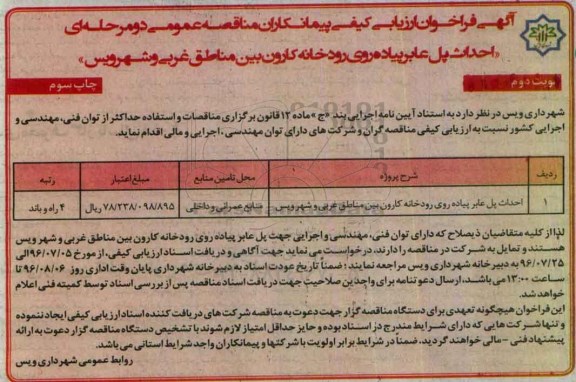 آگهی فراخوان ارزیابی کیفی پیمانکاران مناقصه عمومی دو مرحله ای
«احداث پل عابر پیاده روی رودخانه کارون بین مناطق غربی و شهر ویس»
نوبت دوم
چاپ سوم
شهرداری ویس در نظر دارد به استناد آیین نامه اجرایی بند «ج» ماده ۱۲ قانون برگزاری مناقصات و استفاده حداکثر از توان فنی، مهندسی و
اجرایی کشور نسبت به ارزیابی کیفی مناقصه گران و شرکت های دارای توان مهندسی ، اجرایی و مالی اقدام نماید.
ردیف شرح پروژه محل تامین منابع مبلغ اعتبار رتبه
۱ احداث پل عابر پیاده روی رودخانه کارون بین مناطق غربی و شهر ویس منابع عمرانی و داخلی ۷۸/۲۳۸/۰۹۸/۸۹۵ ریال ۴ راه و باند
لذا از کلیه متقاضیان ذیصلاح که دارای توان فنی، مهندسی و اجرایی جهت پل عابر پیاده روی رودخانه کارون بین مناطق غربی و شهر ویس
هستند و تمایل به شرکت در مناقصه را دارند، درخواست می نماید جهت آگاهی و دریافت اسناد ارزیابی کیفی، از مورخ ۹۶/۰۷/۰۵ الی
۹۶/۰۷/۲۵ به دبیر خانه شهرداری ویس مراجعه نمایند ؛ ضمناً تاریخ عودت اسناد به دبیر خانه شهرداری پایان وقت اداری روز ۹۶/۰۸/۰۶ تا
ساعت ۱۳:۰۰ می باشد، ارسال دعوتنامه برای واجدین صلاحیت جهت دریافت اسناد مناقصه پس از بررسی اسناد توسط کمیته فنی اعلام
خواهد شد.
این فراخوان هیچگونه تعهدی برای دستگاه مناقصه گزار جهت دعوت به مناقصه شرکت های دریافت کننده اسناد ارزیابی کیفی ایجاد ننموده
و تنها شرکت هایی که دارای شرایط مندرج در اسناد بوده و حایز حداقل امتیاز لازم شوند با تشخیص دستگاه مناقصه گزار دعوت به ارائه
پیشنهاد فنی - مالی خواهند گردید، ضمناً در شرایط برابر اولویت با شرکتها و پیمانکاران واجد شرایط استانی می باشد.
روابط عمومی شهرداری ویس